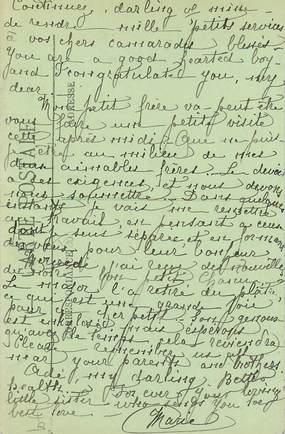 Continuez, darling of mine
de rendre mille petits services
à vos chers camarades blessés
You are a good hearted boy
and I congratulate you, my
dear.
Mon petit frère va peut être
vous faire une petite visite
cette après midi. Que ne puis-
je être au milieu de mes
deux aimables frères. Le devoir
a ses exigences, et nous devons
nous soumettre. Dans quelques
instants je vais me remettre
au travail en pensant à ceux
dont je suis séparée et en formant
des vœux pour leur bonheur
j'ai reçu des nouvelles
de votre petit
Le major l'a retiré du plâtre,
ce qui est une grande joie
pour cher petit. Son genou
est mais espérons
qu'avec le temps cela reviendra
Please remember us all
near your parents and brothers
Adé, my darling, Better
health. For ever your loving
little sister who sends you her
best love
Marie